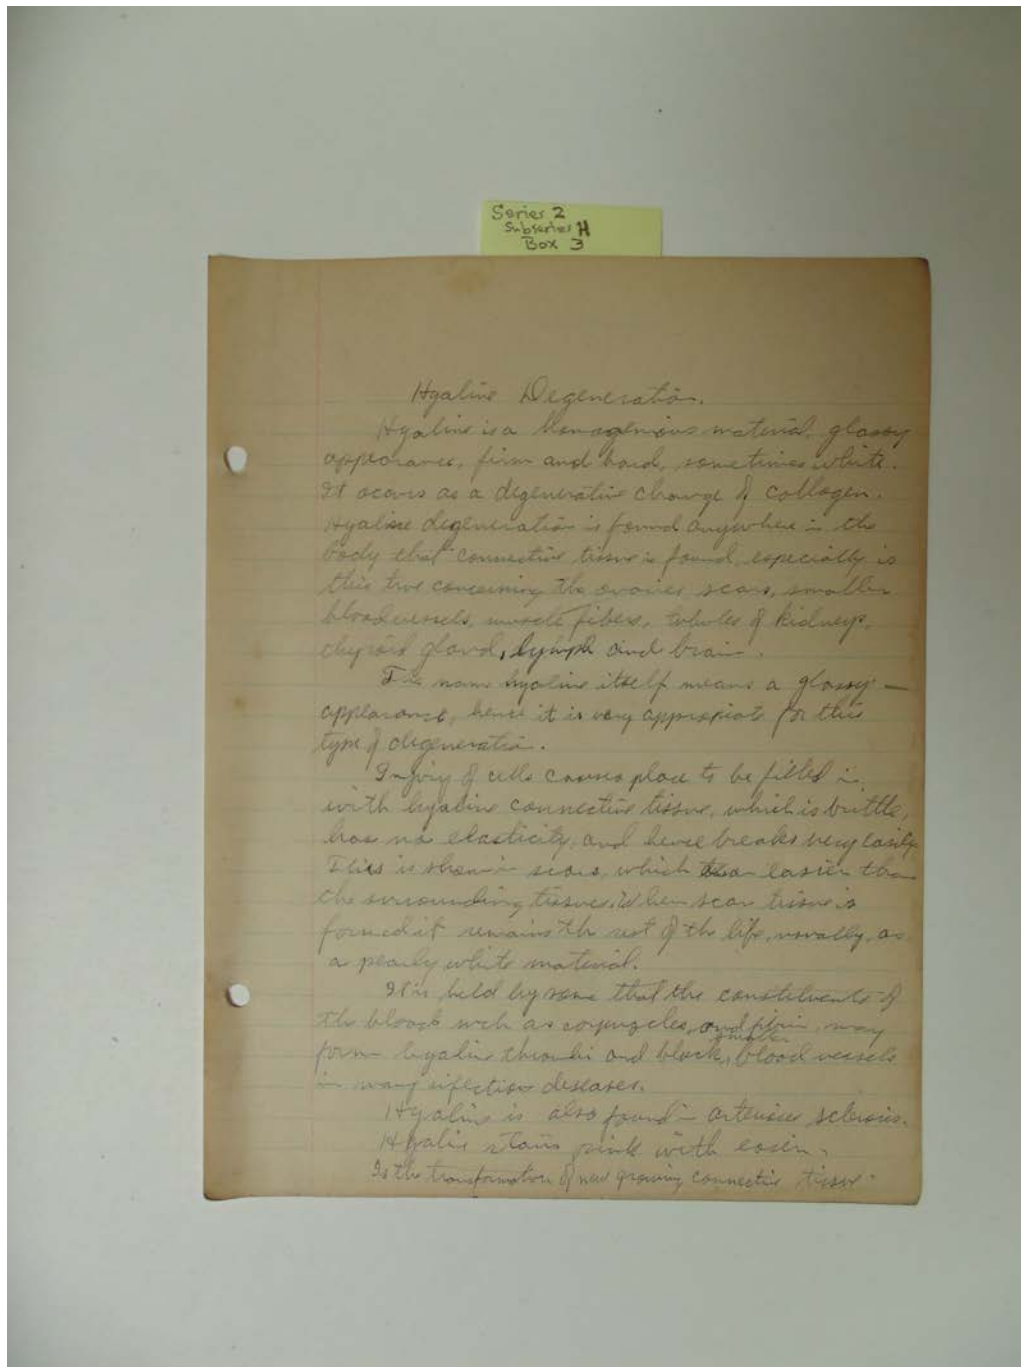 Series 2
Subseries H
Box 3
Hyaline Degeneration.
Hyaline is a homogenious material, glassy
appearance, firm and hard, sometimes white.
It occurs as a degenerative change of collagen.
Hyaline degeneration is found anywhere in the
body that connective tissue is found, especially is
this true concerning the ovaries, scars, smaller
blood vessels, muscle fibers, tubules of kidneys,
thyroid gland, lymph and brain.
The name hyaline itself means a glassy
appearance, hence it is very appropriat for this
type of degeneration.
Injury of cells causes place to be filled in
with hyaline connective tissue, which is brittle,
has no elasticity, and hence breaks very easily.
This is shown in scars, which easier than
the surrounding tissues. When scar tissue is
formed it remains th rest of the life, usually, as
a pearly white material.
It is held by some that the constituents of
the blood such as corpuscles, and fibrin, may
form hyaline thrombi and block smaller blood vessels
in many infectious diseases.
Hyaline is also found in arterio sclerosis.
Hyaline stains pink with eosin.
Is the transformation of new growing connective tissue